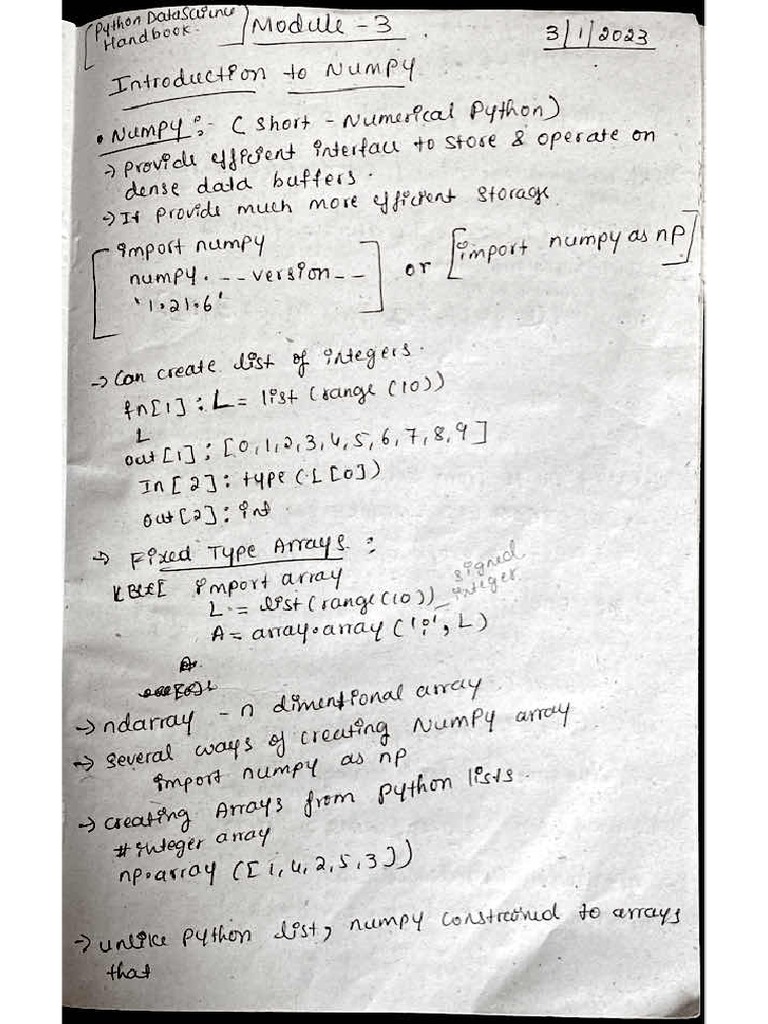 [Python DataScience Handbook.] Module - 3.
3/1/2023
Introduction to NumPy
• NumPy :- (short - Numerical Python)
→ Provide efficient interface to store & operate on
dense data buffers.
→ It provids much more efficient storage
import numpy
numpy.__version__
'1.21.6'
or [import numpy as np]
→ Can create list of integers.
In[1] : L = list (range (10))
L
out [1] : [0,1,2,3,4,5,6,7,8,9]
In [2] : type (L[0])
out [2] : int
→ Fixed Type Arrays :
import array
L = list (range (10))
signed integer
A = array.array ('i', L)
→ ndarray - n dimentional array
→ several ways of creating NumPy array
import numpy as np
→ creating Arrays from Python lists.
# integer array
np.array ([1,4,2,5,3])
→ unlike Python list, numpy constrained to arrays
that